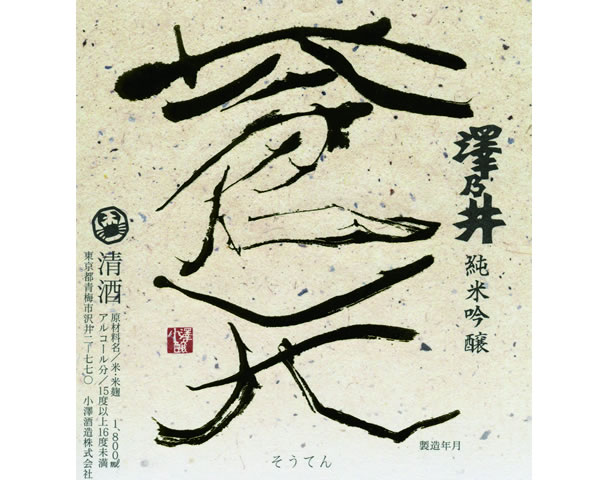 澤乃井
純米吟醸
蒼天
そうてん
製造年月
清酒
原材料名/米・米麹　1,800㎖
アルコール分/15度以上16度未満
東京都青梅市沢井二ー七七〇　小澤酒造株式会社
小澤釀